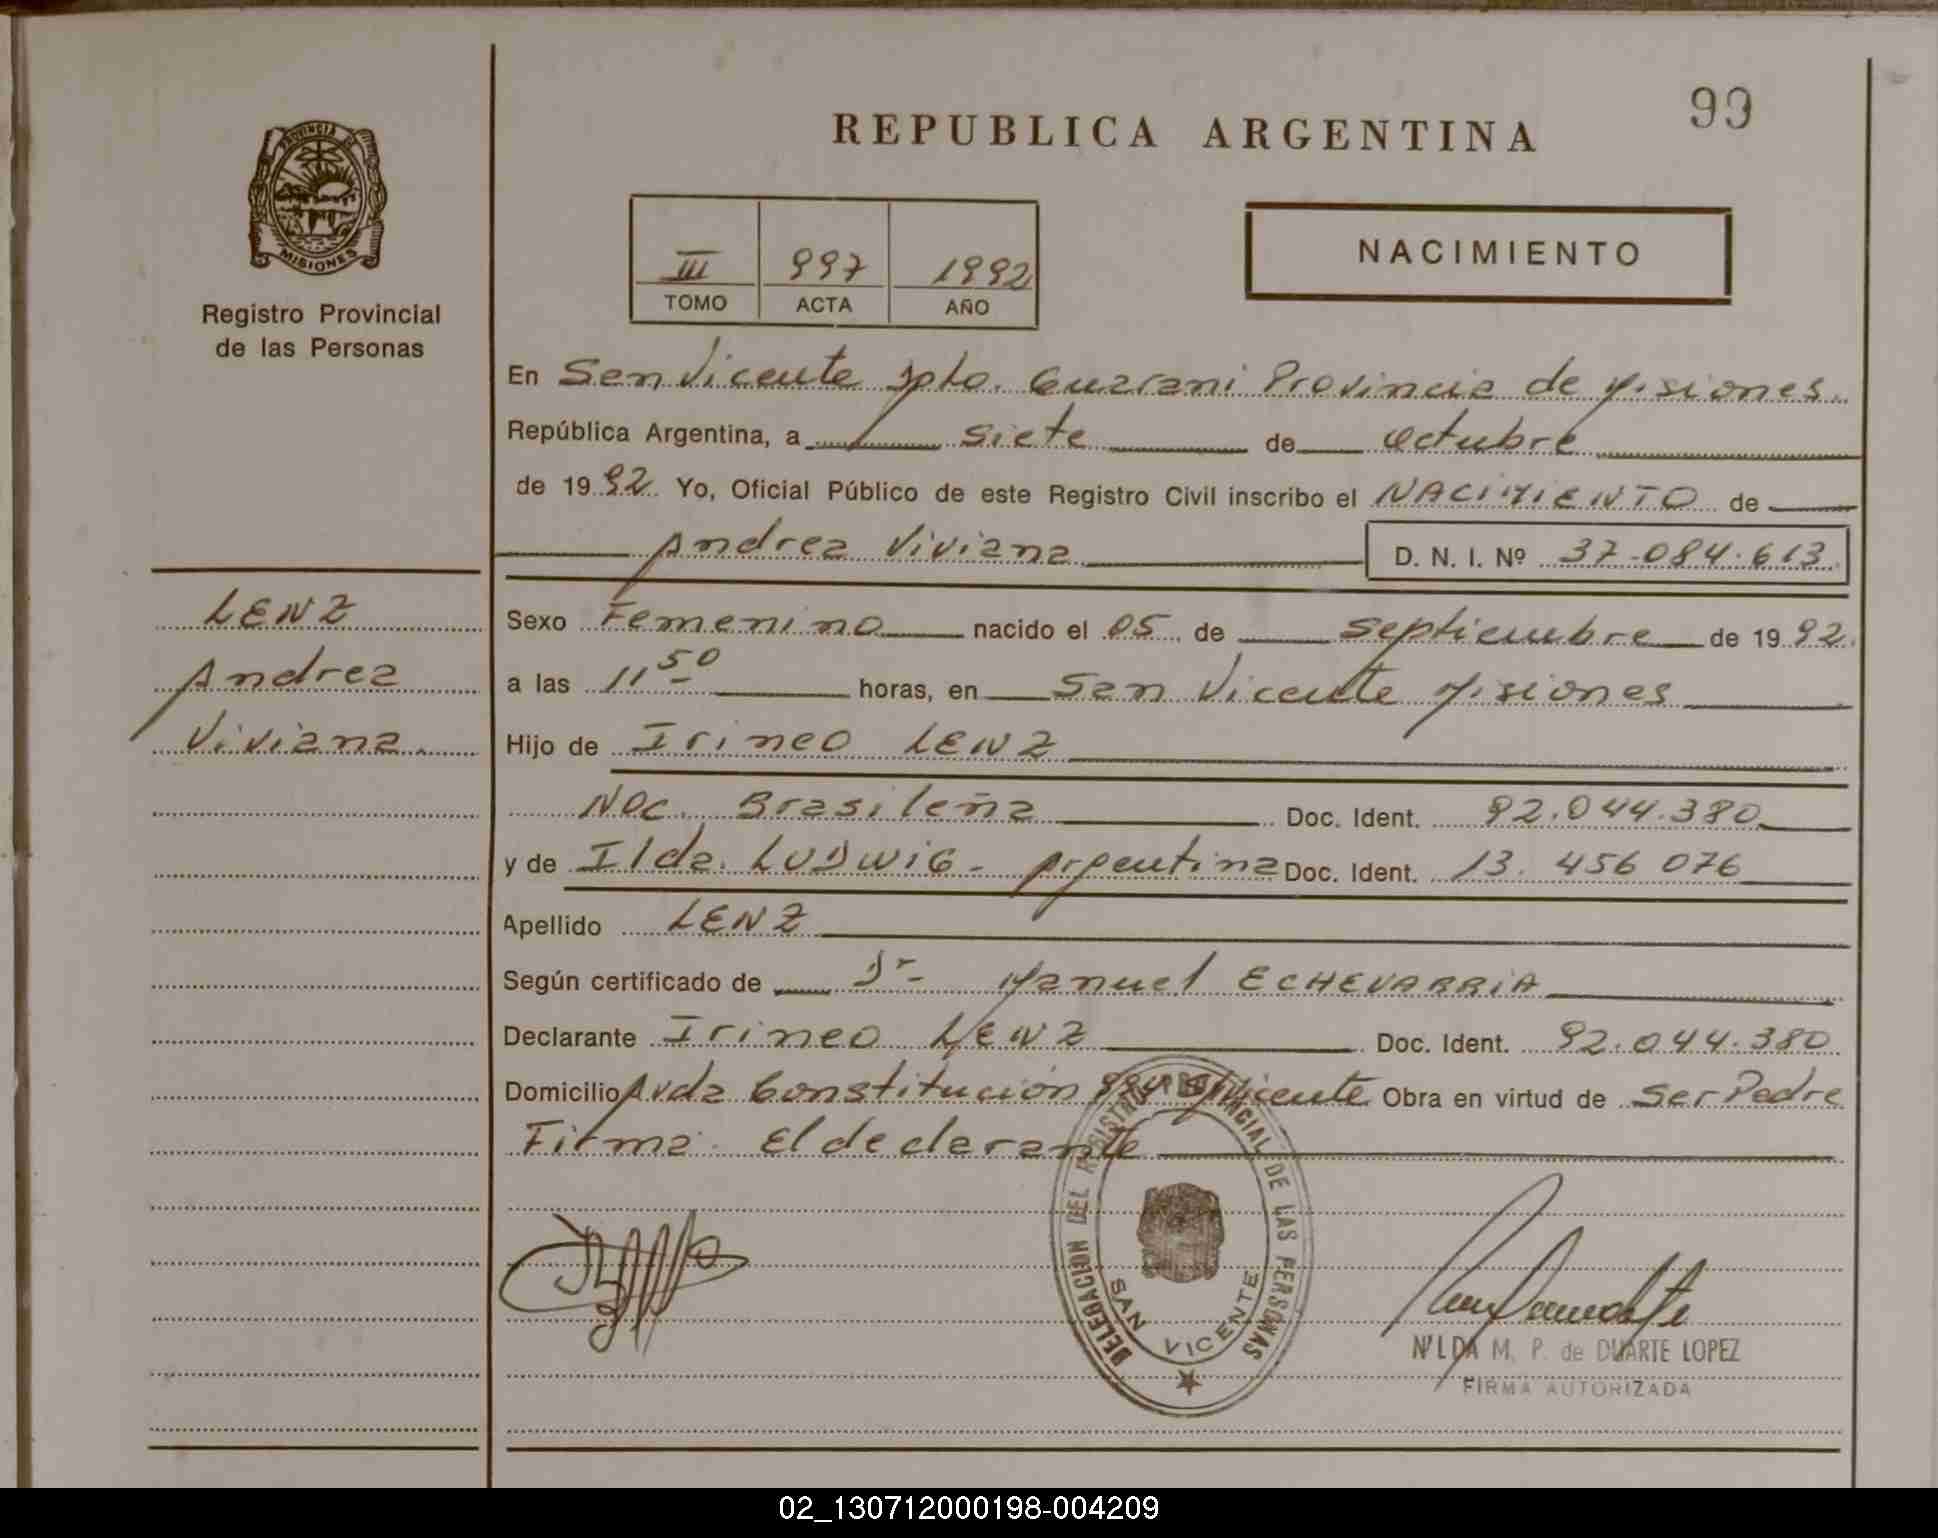 99
REPUBLICA ARGENTINA
PROVINCIA DE
MISIONES
Registro Provincial
de las Personas
NACIMIENTO
III 997 1992
TOMO ACTA AÑO
En San Vicente Dpto. Guarani Provincia de Misiones.
República Argentina, a siete de octubre
de 1992. Yo, Oficial Público de este Registro Civil inscribo el NACIMIENTO de
Andrea Viviana D. N. I. Nº 37.084.613.
LENZ
Andrea
Viviana.
Sexo Femenino nacido el 05 de septiembre de 1992.
a las 11 50 horas, en San Vicente Misiones
Hijo de Irineo LENZ
Nac. Brasileña Doc. Ident. 92.044.380
y de Ilda LUDWIG - Argentina Doc. Ident. 13.456 076
Apellido LENZ
Según certificado de Dr Manuel ECHEVARRIA
Declarante Irineo LENZ Doc. Ident. 92.044.380
Domicilio Avda Constitución S/Vicente Obra en virtud de Ser Padre
Firma: El declarante
DELEGACION DEL REGISTRO PROVINCIAL DE LAS PERSONAS
SAN VICENTE
NILDA M. P. de DUARTE LOPEZ
FIRMA AUTORIZADA
02_130712000198-004209